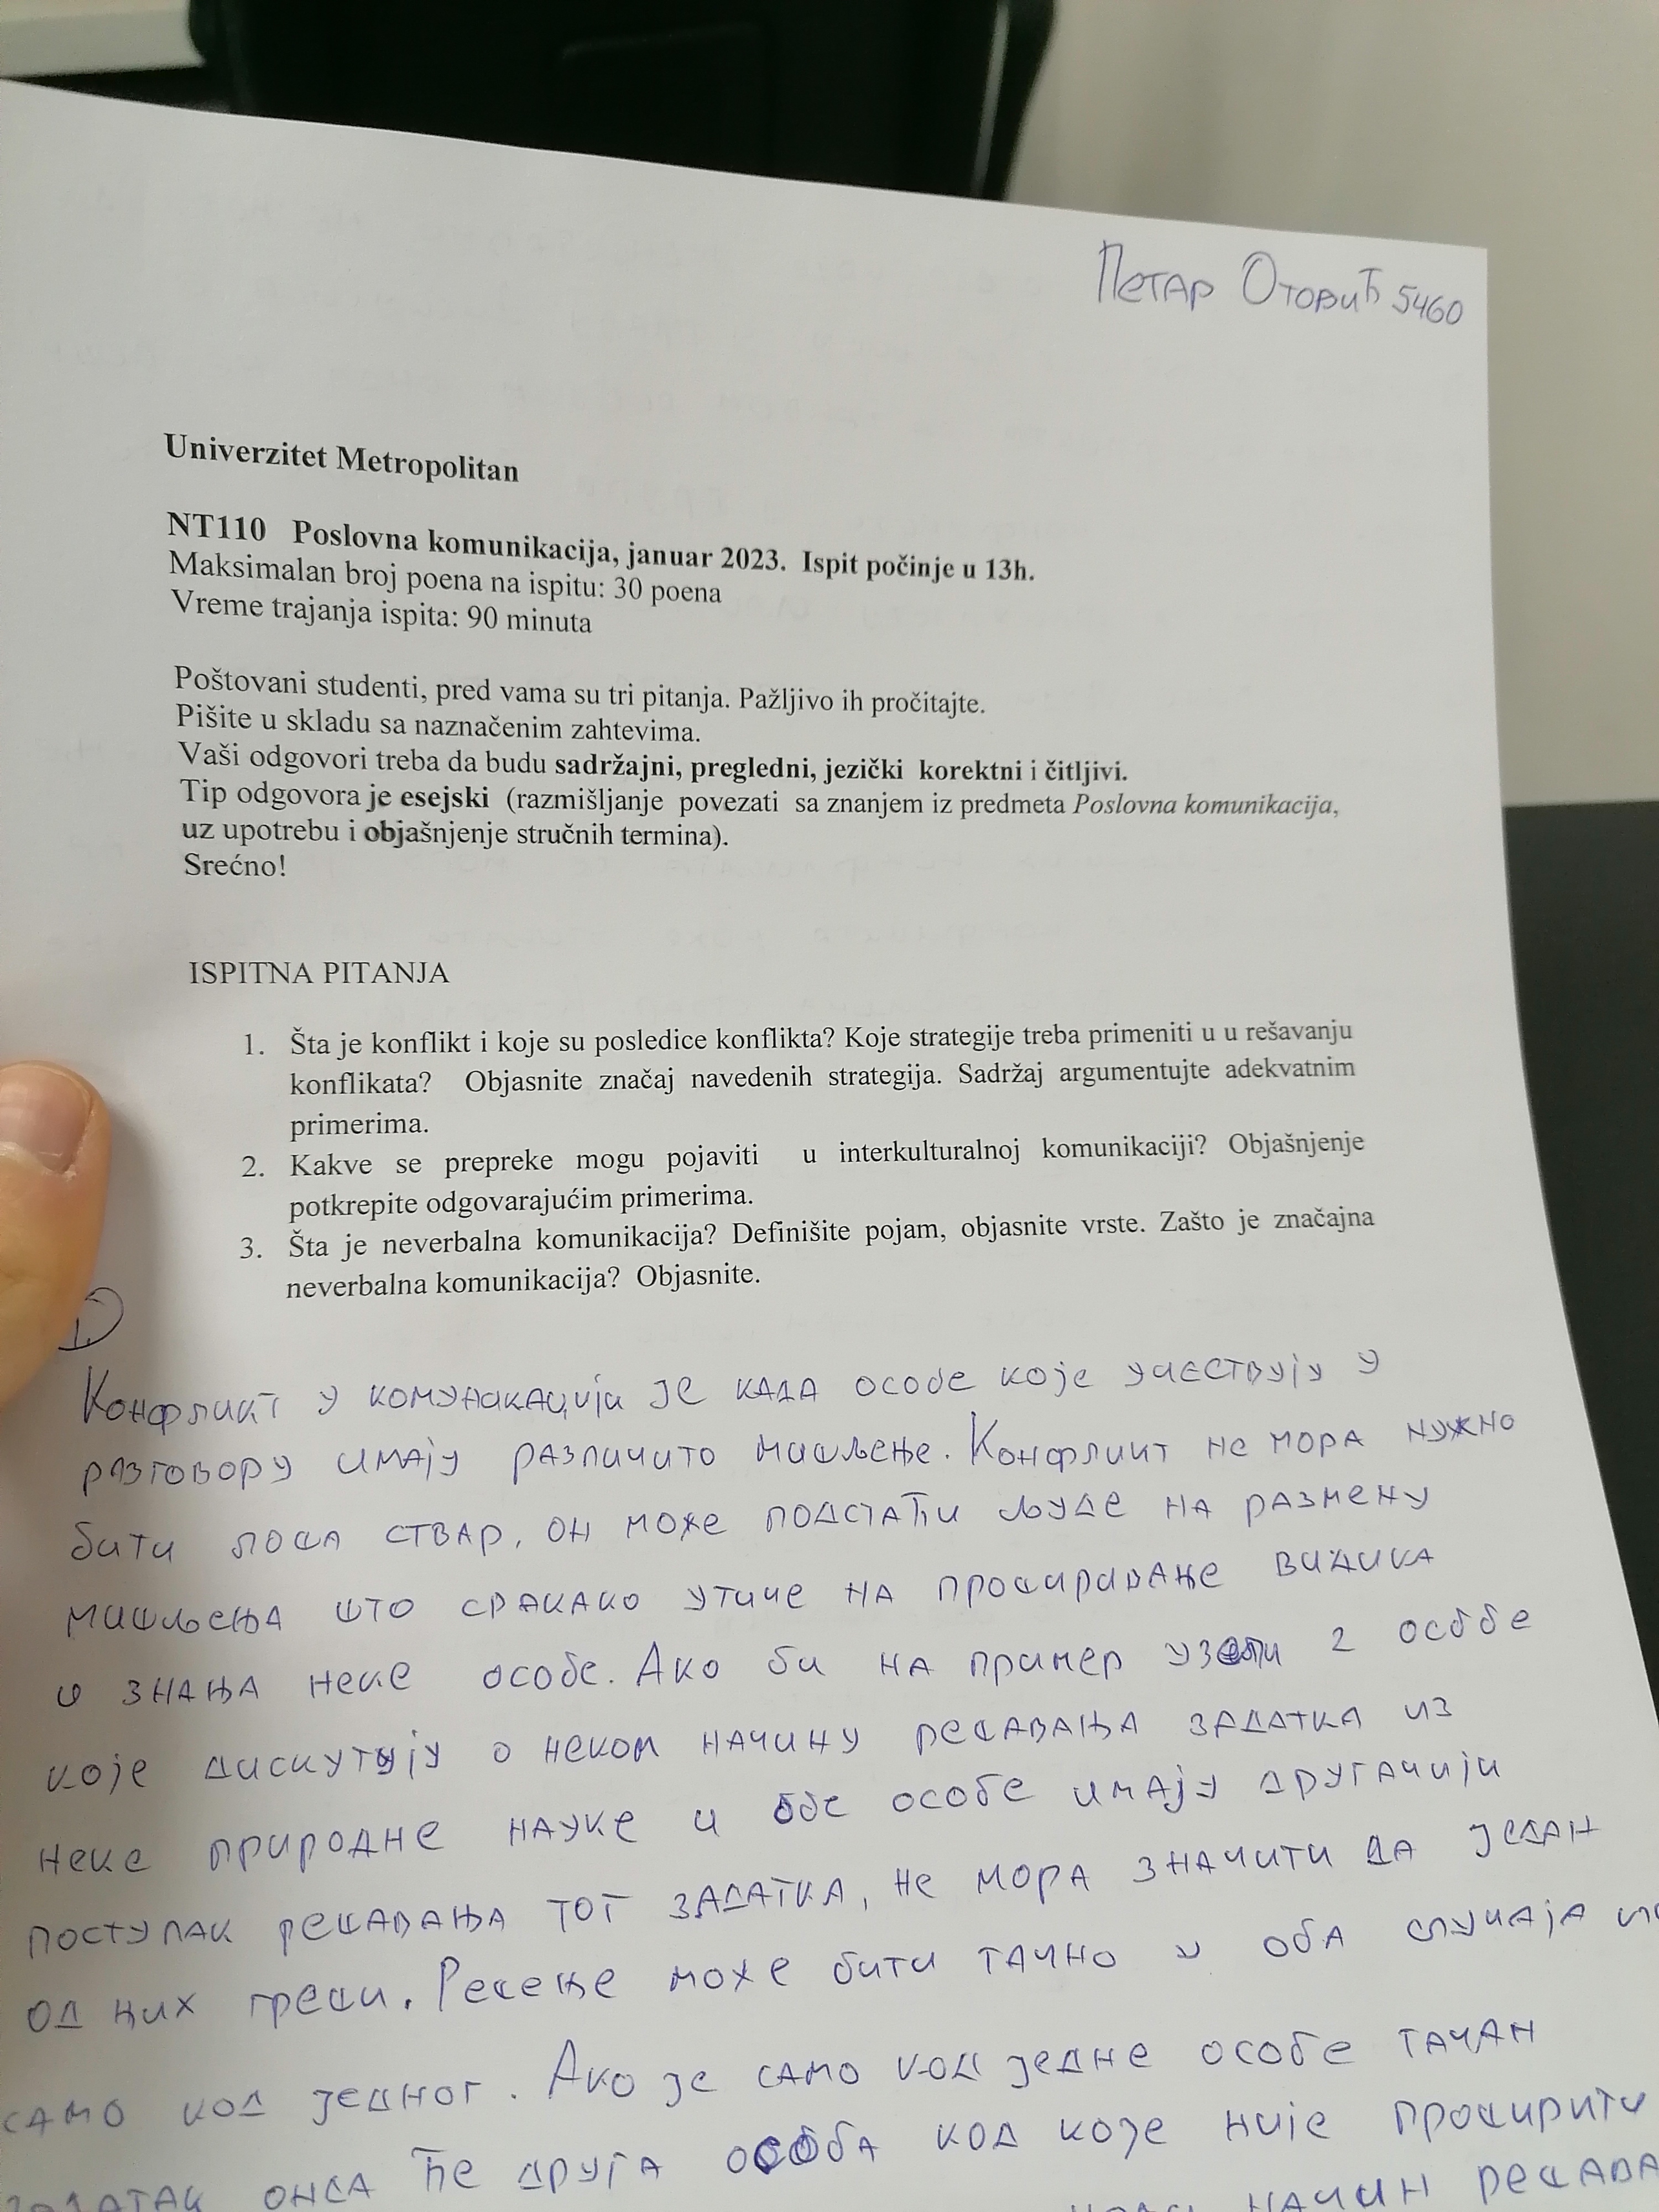 Петар Отовић 5460
Univerzitet Metropolitan
NT110 Poslovna komunikacija, januar 2023. Ispit počinje u 13h.
Maksimalan broj poena na ispitu: 30 poena
Vreme trajanja ispita: 90 minuta
Poštovani studenti, pred vama su tri pitanja. Pažljivo ih pročitajte.
Pišite u skladu sa naznačenim zahtevima.
Vaši odgovori treba da budu sadržajni, pregledni, jezički korektni i čitljivi.
Tip odgovora je esejski (razmišljanje povezati sa znanjem iz predmeta Poslovna komunikacija,
uz upotrebu i objašnjenje stručnih termina).
Srećno!
ISPITNA PITANJA
1. Šta je konflikt i koje su posledice konflikta? Koje strategije treba primeniti u u rešavanju
konflikata? Objasnite značaj navedenih strategija. Sadržaj argumentujte adekvatnim
primerima.
2. Kakve se prepreke mogu pojaviti u interkulturalnoj komunikaciji? Objašnjenje
potkrepite odgovarajućim primerima.
3. Šta je neverbalna komunikacija? Definišite pojam, objasnite vrste. Zašto je značajna
neverbalna komunikacija? Objasnite.
1.
Конфликт у комуникацији је када особе које учествују у
разговору имају различито мишљење. Конфликт не мора нужно
бити лоша ствар, он може подстаћи људе на размену
мишљења што свакако утиче на проширивање видика
и знања неке особе. Ако би на пример узели 2 особе
које дискутују о неком начину решавања задатка из
неке природне науке и обе особе имају другачији
поступак решавања тог задатка, не мора значити да један
од њих греши. Решење може бити тачно у оба случаја
само код једног. Ако је само код једне особе тачан
задатак онда ће друга особа код које није проширити
начин решава